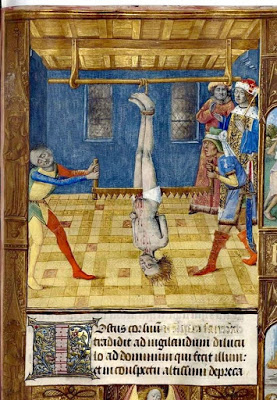 Iustus cor suum
tradidit ad vigilandum dilucu
lo ad dominum qui fecit illum:
et in conspectu altissimi depreca